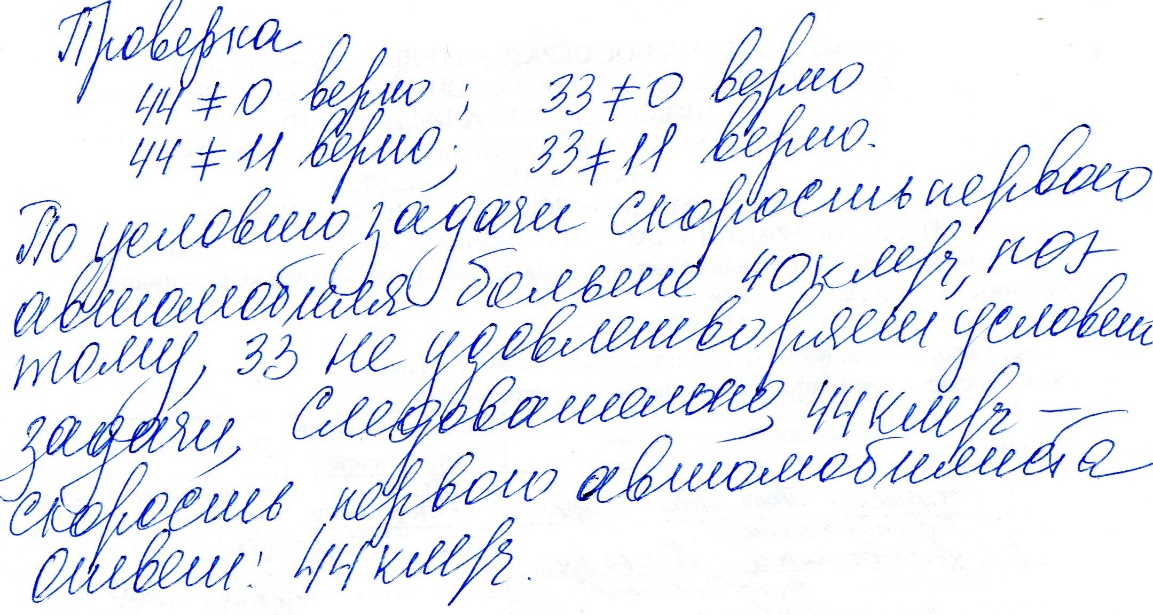 Проверка
44 ≠ 0 верно; 33 ≠ 0 верно
44 ≠ 11 верно; 33 ≠ 11 верно.
По условию задачи скорость первого
автомобиля больше 40 км/ч, поэ-
тому, 33 не удовлетворяет условию
задачи, следовательно, 44 км/ч –
скорость первого автомобилиста
Ответ: 44 км/ч.